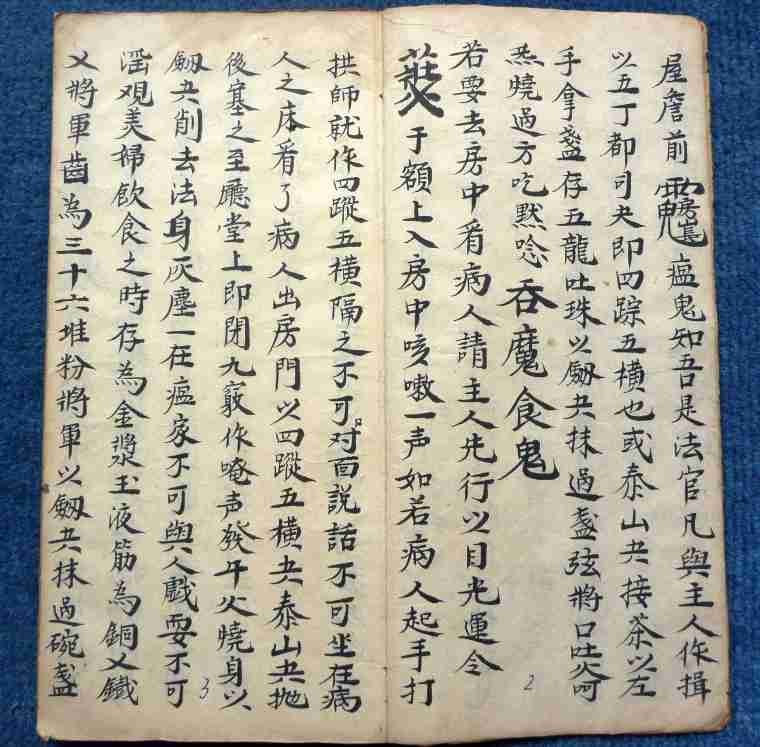 屋簷前瘟鬼知吾是法官凡與主人作揖
以五丁都司夬即四踪五横也或泰山夬接茶以左
手拿盞存五龍吐珠以劔夬抹過盞弦將口吐火呵
炁燒過方吃默唸吞魔食鬼
若要去房中看病人請主人先行以目光運令
于額上入房中咳嗽一声如若病人起手打
拱師就作四蹤五横隔之不可对面説話不可坐在病
人之床看了病人出房門以四蹤五横夬泰山夬抛
後塞之至廳堂上即閉九竅作唵声發午火燒身以
劔夬削去法身灰塵一在瘟家不可與人戲耍不可
滛观美婦飲食之時存為金漿玉液筋為銅乂鐵
乂將軍齒為三十六堆粉將軍以劔夬抹過碗盞
2
3